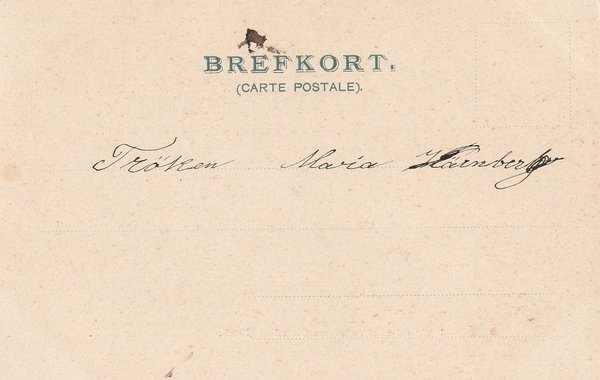 BREFKORT.
(CARTE POSTALE).
Fröken Maria